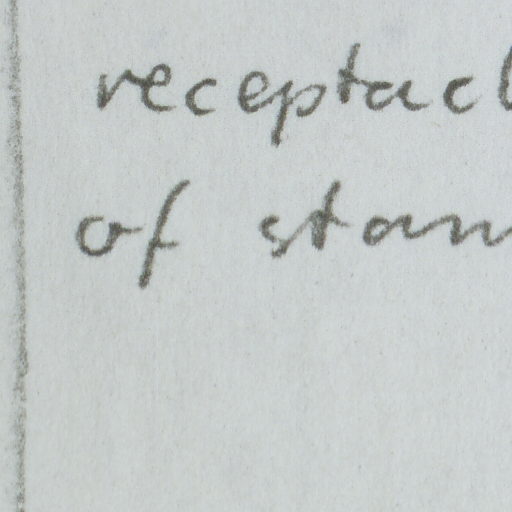 receptacl
of stam